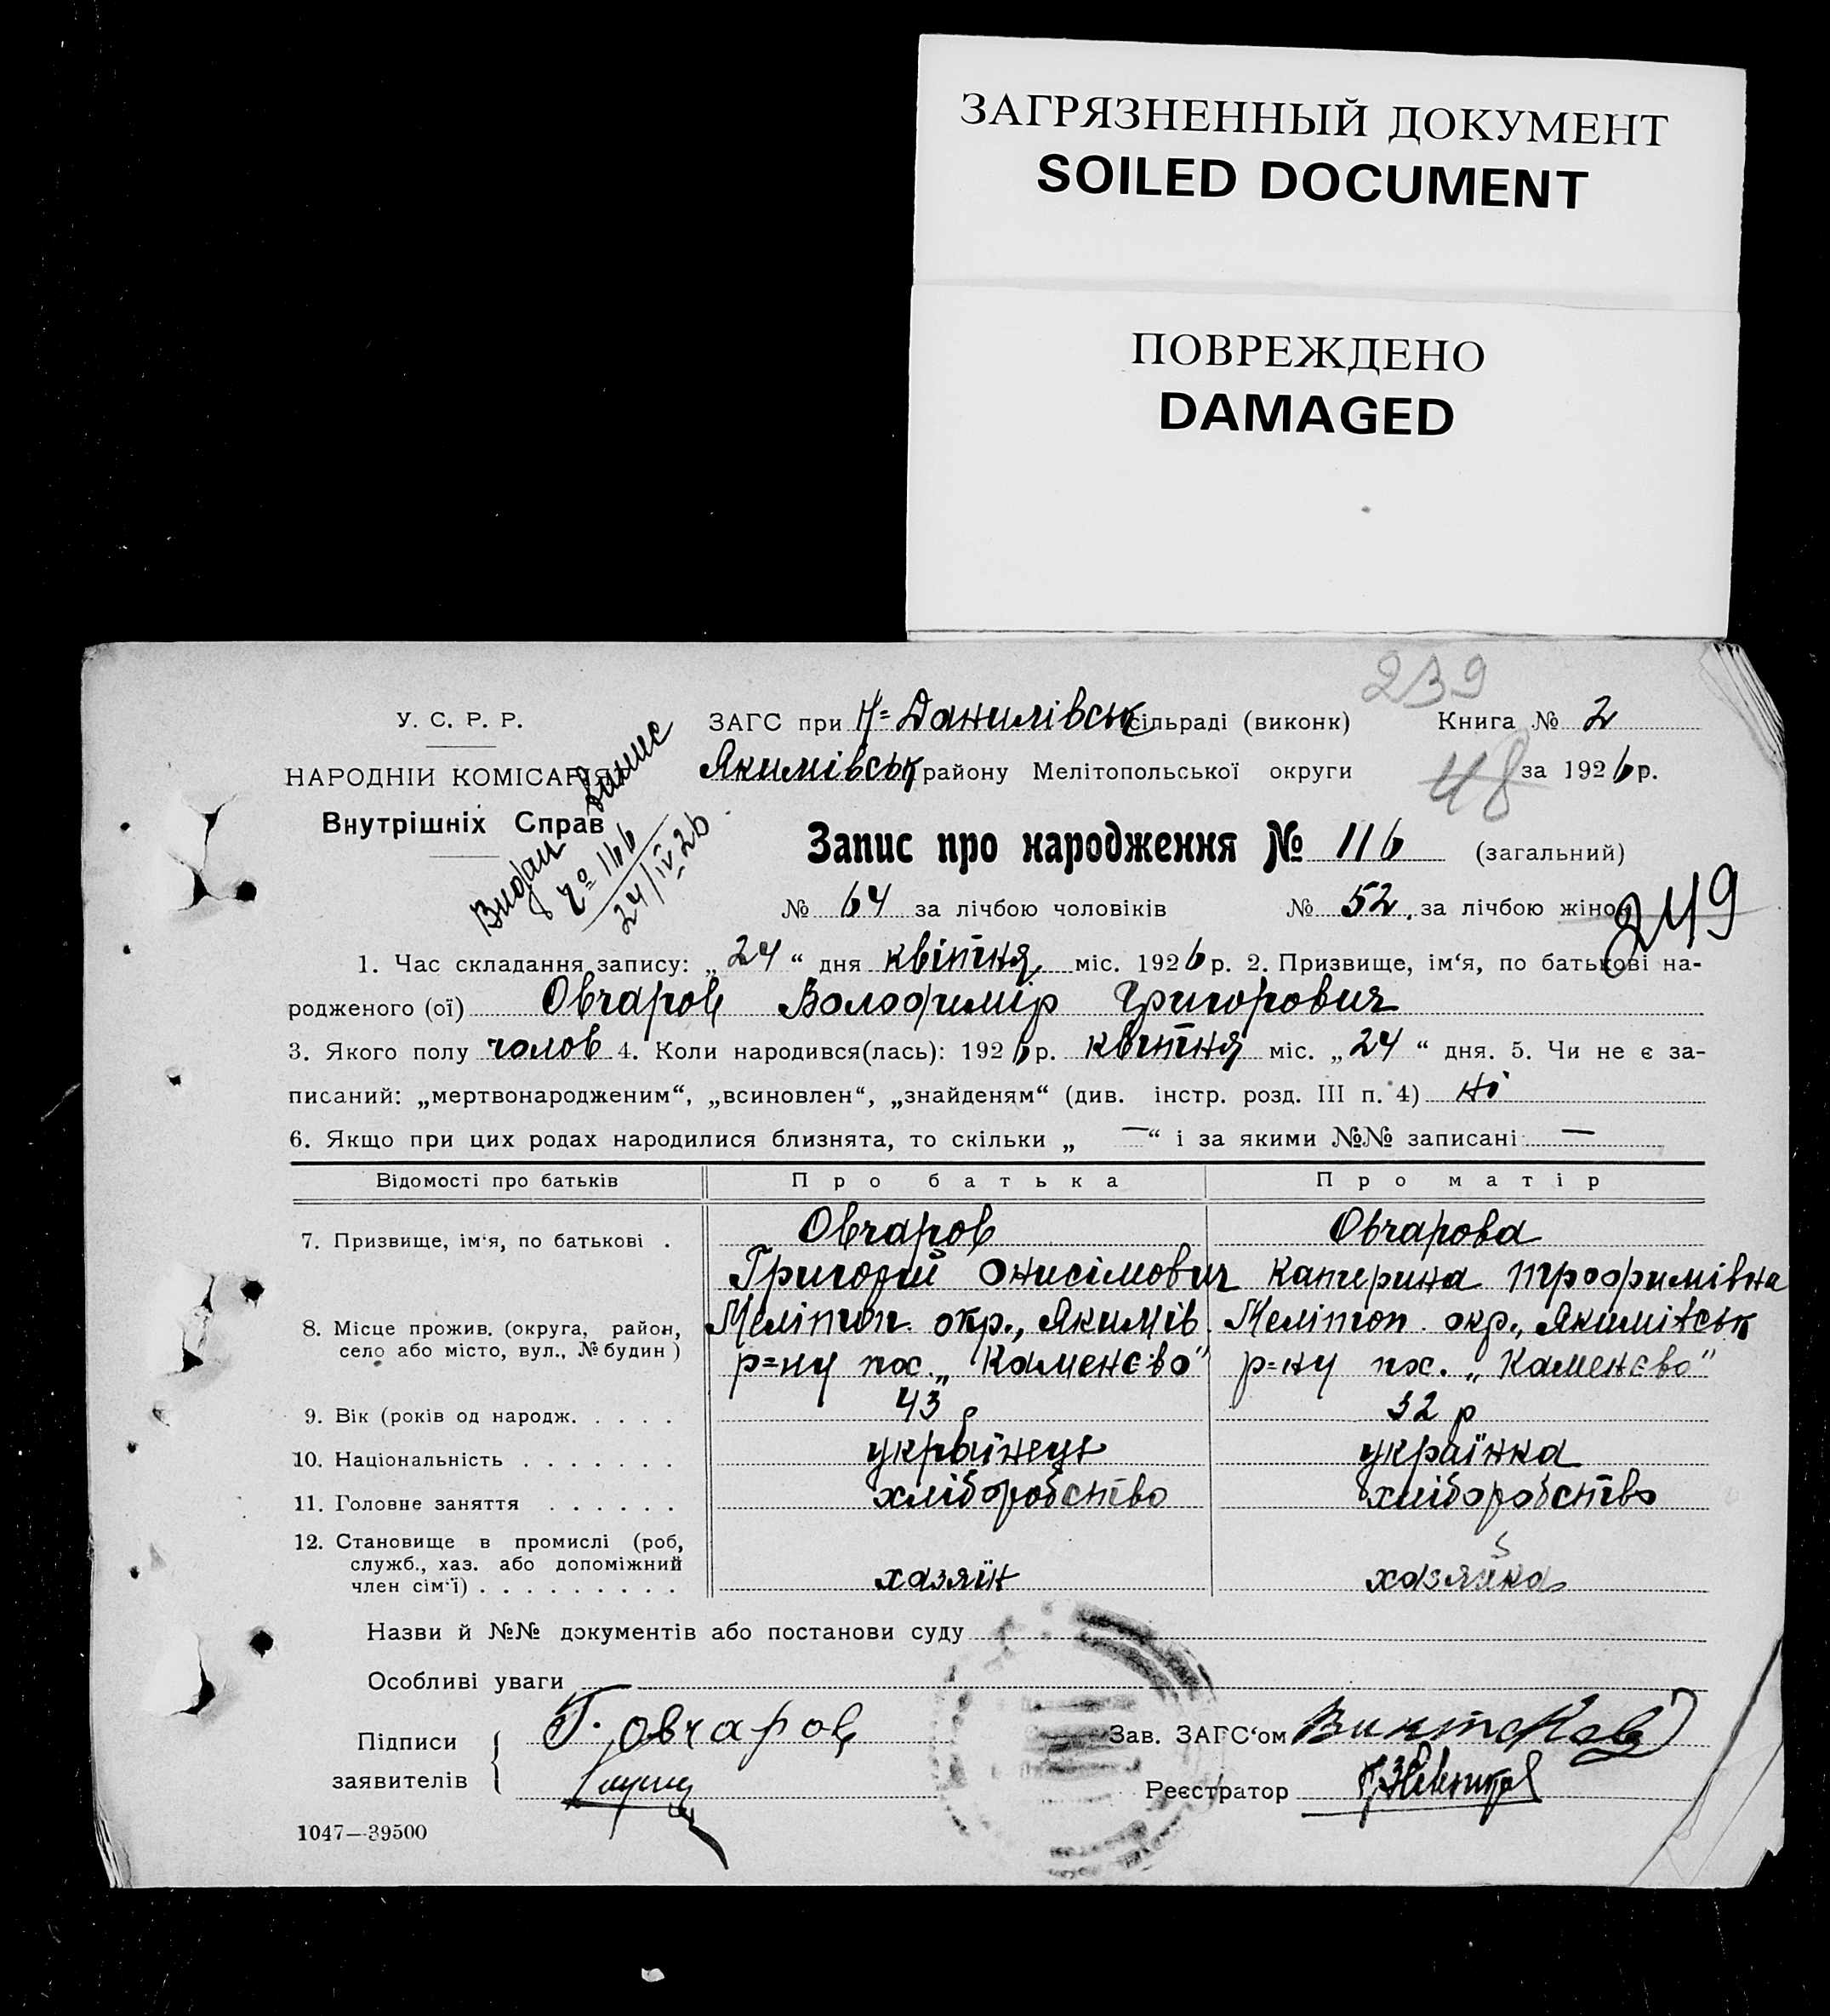 ЗАГРЯЗНЕННЫЙ ДОКУМЕНТ
SOILED DOCUMENT
ПОВРЕЖДЕНО
DAMAGED
239
У. С. Р. Р.
НАРОДНІЙ КОМІСАРІЯТ
Внутрішніх Справ
Видан
№ 116
24/IV 26
ЗАГС при Н=Данилівськ сільраді (виконк) Книга № 2
Якимівськ району Мелітопольської округи за 1926 р.
48
Запис про народження № 116 (загальний)
№ 64 за лічбою чоловіків № 52. за лічбою жінок
249
1. Час складання запису: „24“ дня квітня міс. 1926 р. 2. Призвище, ім‘я, по батькові на-
родженого (ої) Овчаров Володимір Григорович
3. Якого полу чолов 4. Коли народився(лась): 1926 р. квітня міс. „24“ дня. 5. Чи не є за-
писаний: „мертвонародженим“, „всиновлен“, „знайденям“ (див. інстр. розд. III п. 4) ні
6. Якщо при цих родах народилися близнята, то скільки „ — “ і за якими №№ записані —
Відомості про батьків Про батька Про матір
7. Призвище, ім‘я, по батькові . Овчаров Овчарова
Григорій Онисімович Катерина Трофимівна
8. Місце прожив. (округа, район, Меліпоп. окр., Якимів. Меліпоп. окр., Якимівськ
село або місто, вул., № будин ) р=ну пос. „Каменєво“ р=ну пос. „Каменєво“
9. Вік (років од народж. . . . . 43 р 32 р
10. Національність . . . . . . . українець українка
11. Головне заняття . . . . . . хліборобство хліборобство
12. Становище в промислі (роб,
служб., хаз. або допоміжний
член сім‘ї) . . . . . . . . . хазяїн хазяйка
Назви й №№ документів або постанови суду
Особливі уваги —
Підписи заявителів Г. Овчаров
Зав. ЗАГС‘ом
Реєстратор
1047—39500